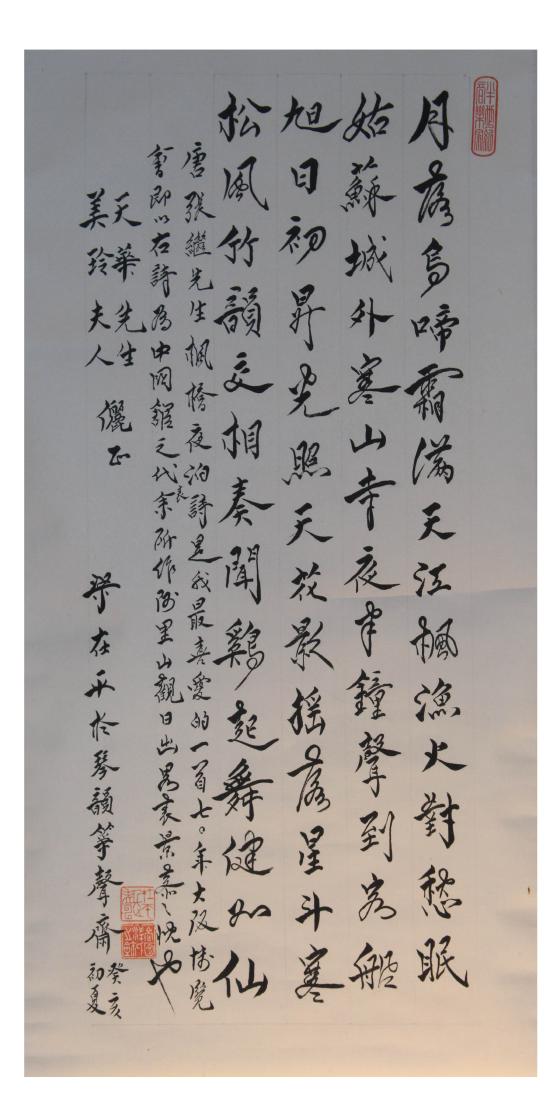 月落烏啼霜滿天江楓漁火對愁眠
姑蘇城外寒山寺夜半鐘聲到客船
旭日初昇光照天花影搖落星斗寒
松風竹韻交相奏聞鷄起舞健如仙
唐張繼先生楓橋夜泊詩是我最喜愛的一首七〇年大阪博覽
會即以右詩為中國館之代表余所作阿里山觀日出畧表景慕之忱也
天華先生
美玲夫人 儷正
梁在平於琴韻箏聲齋
癸亥
初夏